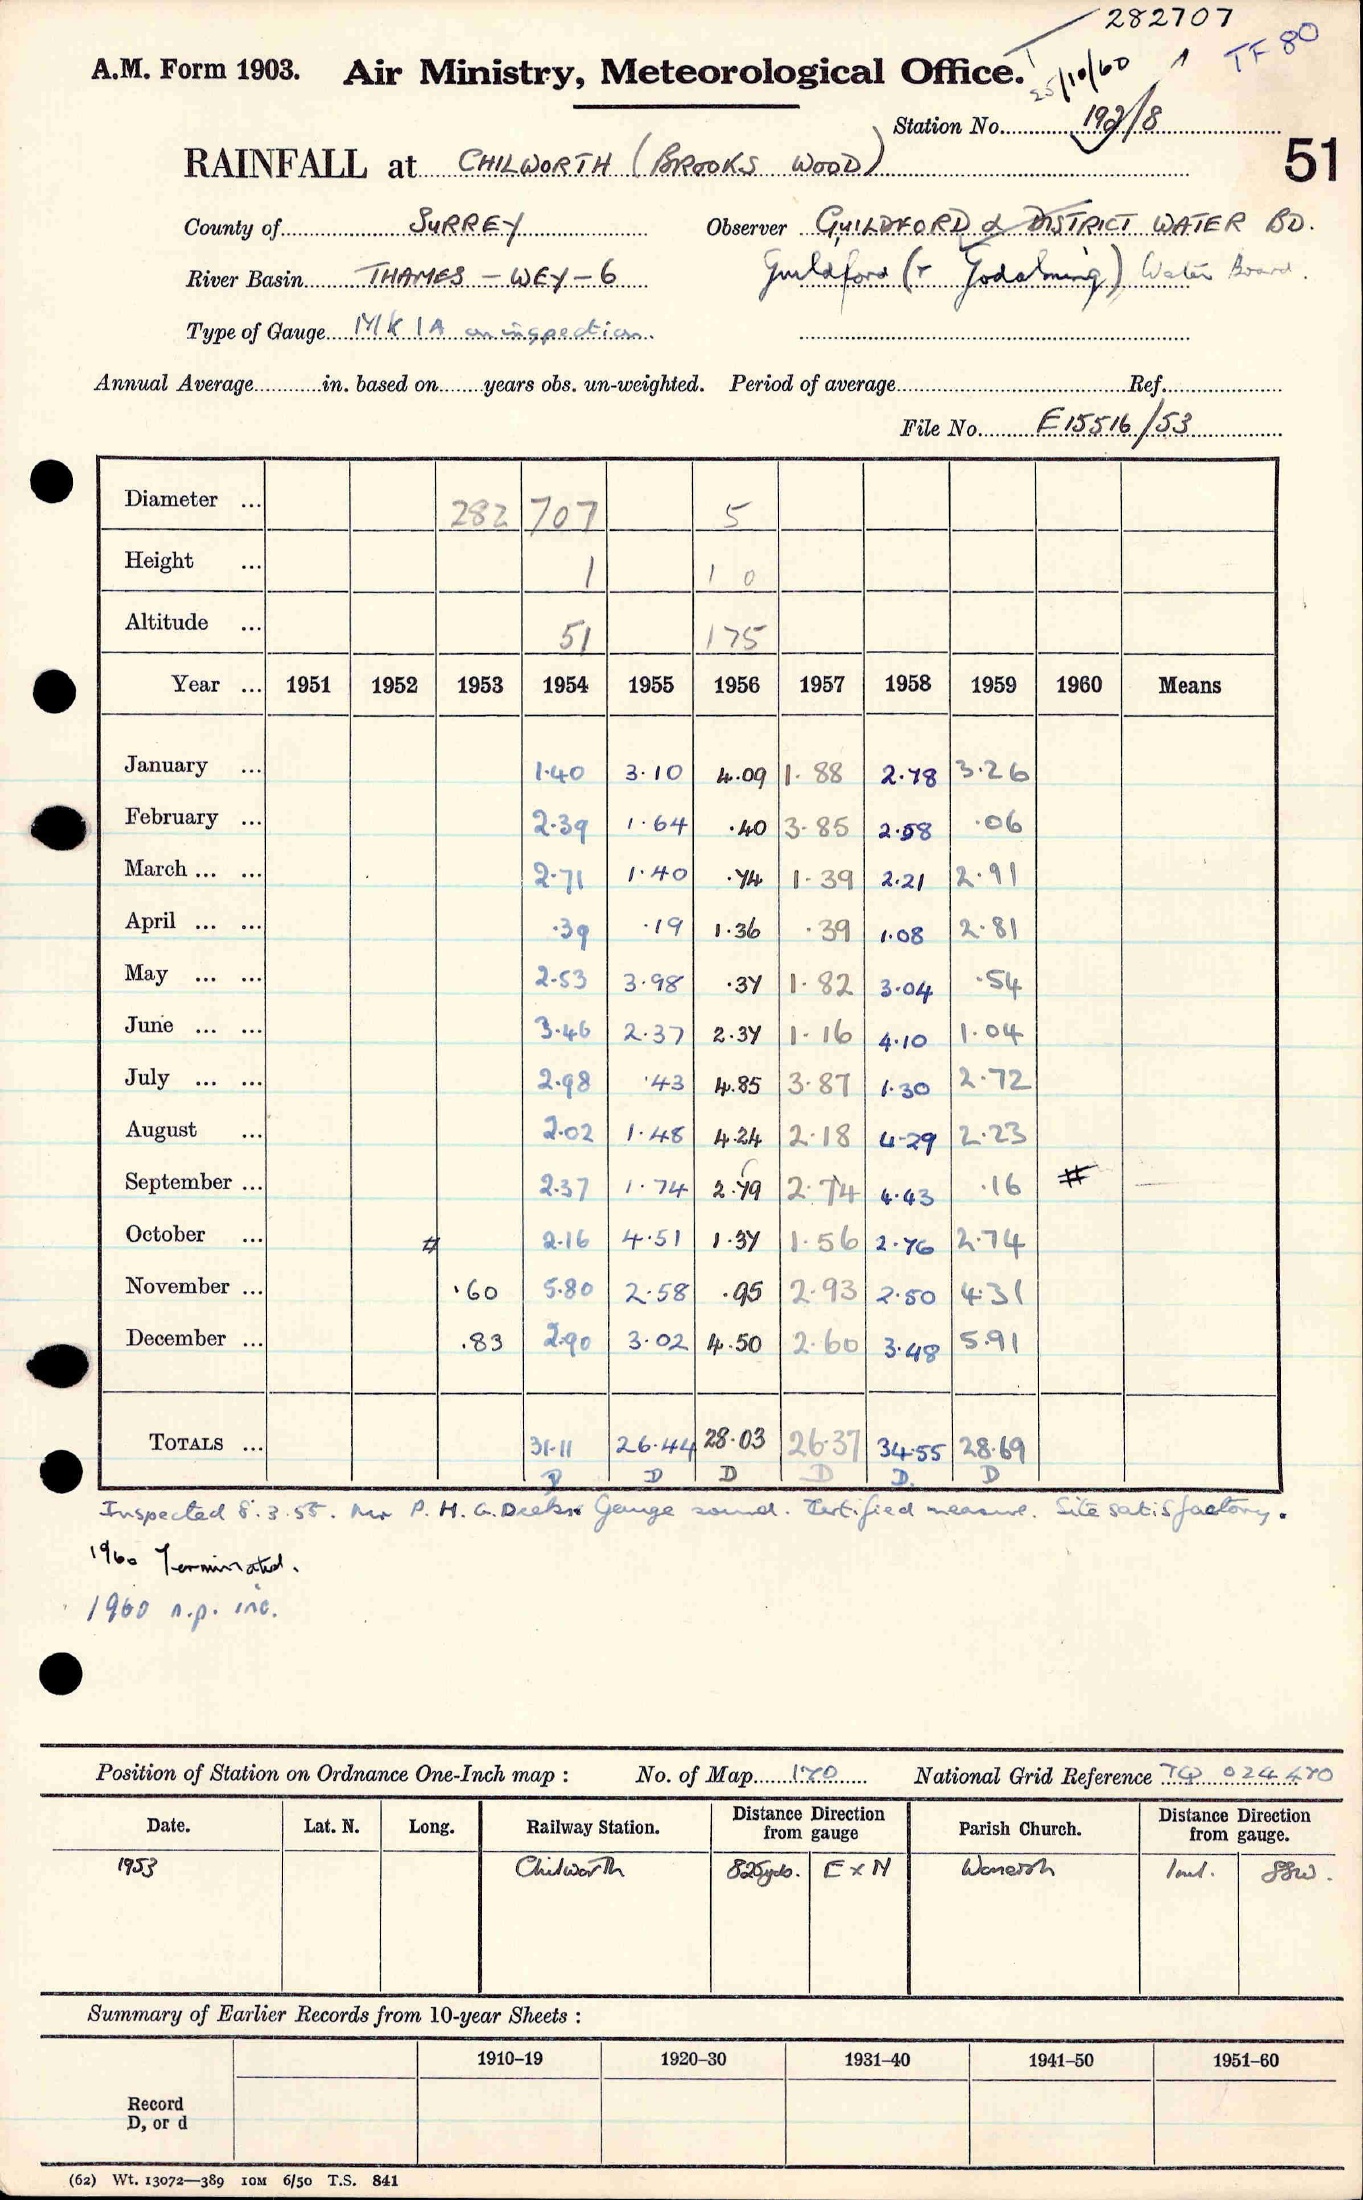 282707
TF 80
A.M. Form 1903. Air Ministry, Meteorological Office.
25/10/60
Station No. 192/8
51
RAINFALL at CHILWORTH (BROOKS WOOD)
County of SURREY Observer GUILDFORD & DISTRICT WATER BD.
River Basin THAMES - WEY - 6 Guildford (+ Godalming) Water Board.
Type of Gauge MK IA on inspection.
Annual Average in. based on years obs. un-weighted. Period of average Ref.
File No. E15516/53
Diameter ... 282 707 5
Height ... 1 1 0
Altitude ... 51 175
Year ... 1951 1952 1953 1954 1955 1956 1957 1958 1959 1960 Means
January ... 1.40 3.10 4.09 1.88 2.78 3.26
February ... 2.39 1.64 .40 3.85 2.58 .06
March ... ... 2.71 1.40 .74 1.39 2.21 2.91
April ... ... .39 .19 1.36 .39 1.08 2.81
May ... ... 2.53 3.98 .37 1.82 3.04 .54
June ... ... 3.46 2.37 2.37 1.16 4.10 1.04
July ... ... 2.98 .43 4.85 3.87 1.30 2.72
August ... 2.02 1.48 4.24 2.18 4.29 2.23
September ... 2.37 1.74 2.79 2.74 4.43 .16 #
October ... # 2.16 4.51 1.37 1.56 2.76 2.74
November ... .60 5.80 2.58 .95 2.93 2.50 4.31
December ... .83 2.90 3.02 4.50 2.60 3.48 5.91
TOTALS ... 31.11 26.44 28.03 26.37 34.55 28.69
D D D D D. D
Inspected 8.3.55. Mr P. H. G. Gauge sound. Certified measure. Site satisfactory.
1960 Terminated.
1960 n.p. inc.
Position of Station on Ordnance One-Inch map : No. of Map 170 National Grid Reference TQ 024470
Date. Lat. N. Long. Railway Station. Distance Direction from gauge Parish Church. Distance Direction from gauge.
1953 Chilworth 825yds. E x N Wonersh 1ml. SSW.
Summary of Earlier Records from 10-year Sheets :
1910–19 1920–30 1931–40 1941–50 1951–60
Record
D, or d
(62) Wt. 13072—389 10M 6/50 T.S. 841